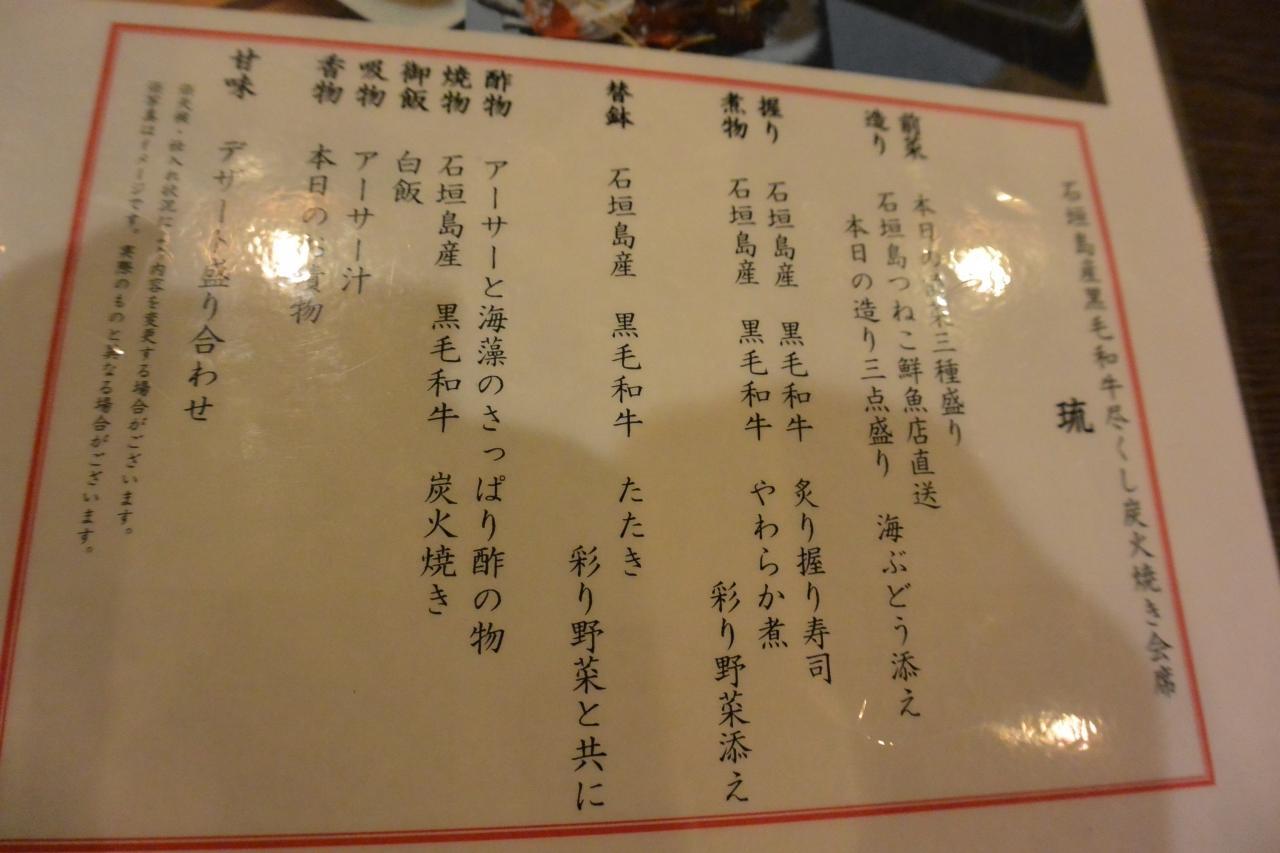 石垣島産黒毛和牛尽くし炭火焼き会席
琉
前菜 本日の 三種盛り
造り 石垣島つねこ鮮魚店直送
本日の造り三点盛り 海ぶどう添え
握り 石垣島産 黒毛和牛 炙り握り寿司
煮物 石垣島産 黒毛和牛 やわらか煮
彩り野菜添え
替鉢 石垣島産 黒毛和牛 たたき
彩り野菜と共に
酢物 アーサーと海藻のさっぱり酢の物
焼物 石垣島産 黒毛和牛 炭火焼き
御飯 白飯
吸物 アーサー汁
香物 本日のお漬物
甘味 デザート盛り合わせ
※天候・仕入れ状況により内容を変更する場合がございます。
※写真はイメージです。実際のものと異なる場合がございます。